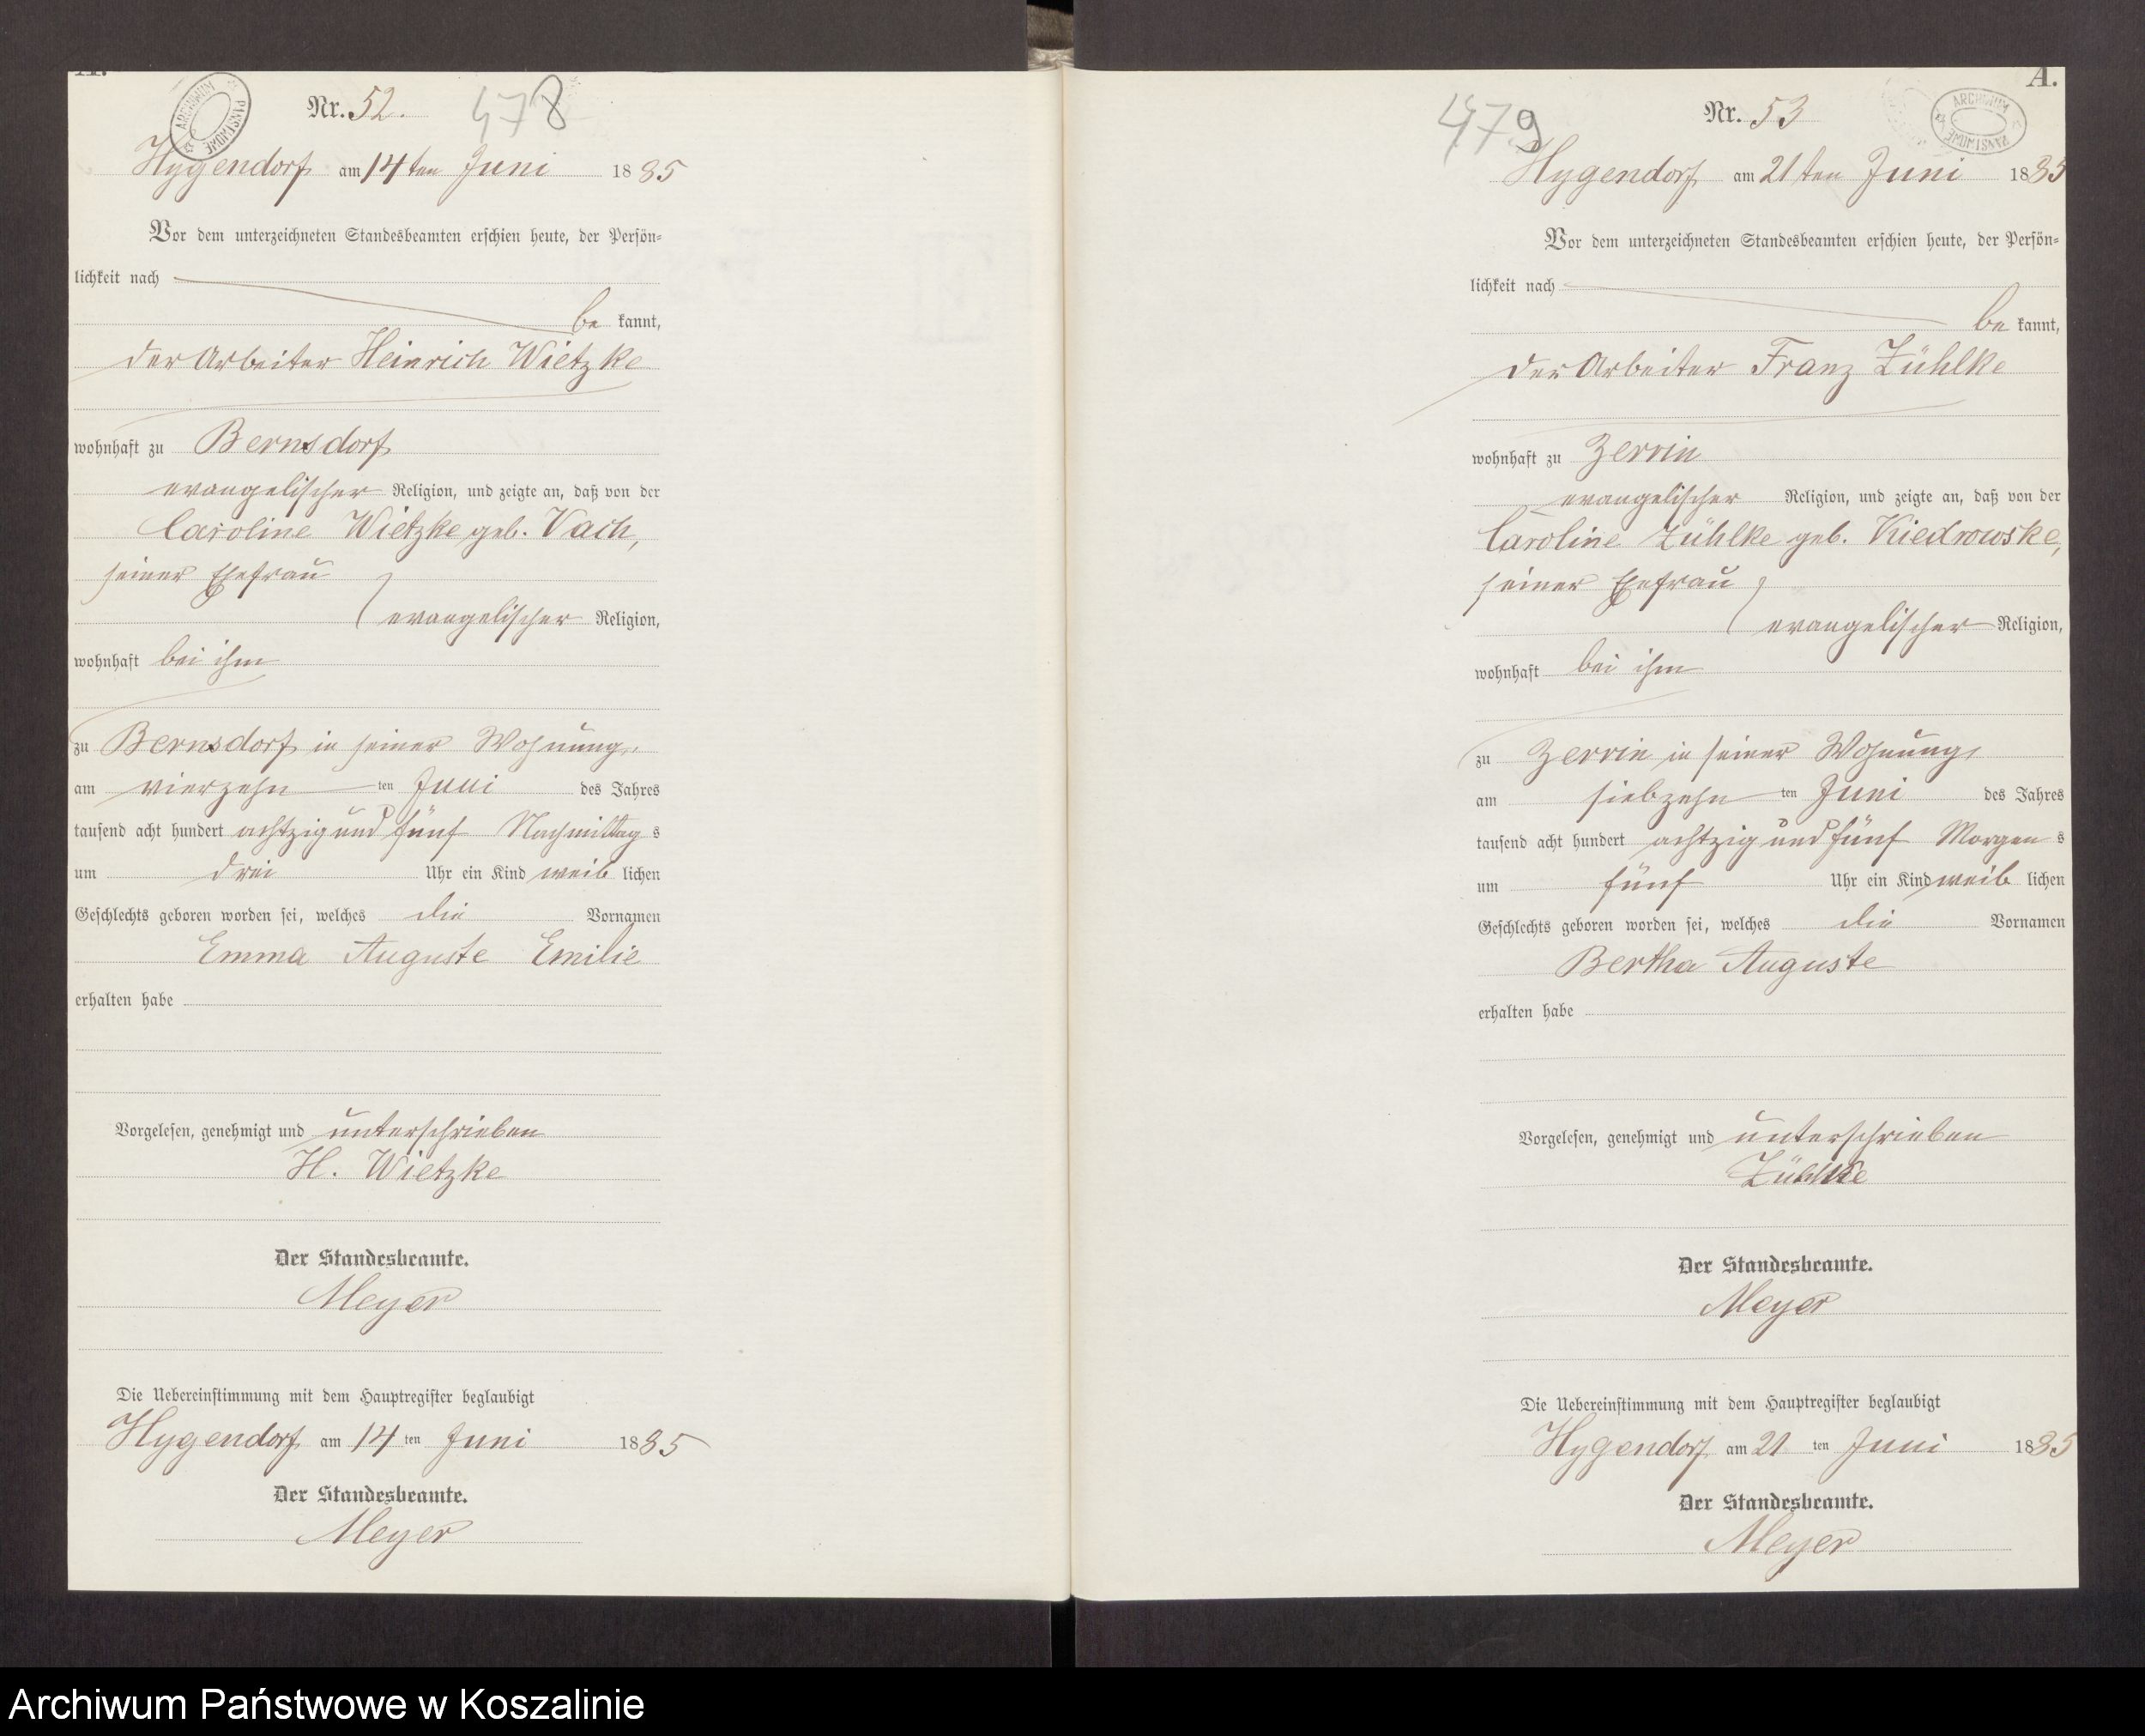 A.
ARCHIWUM PAŃSTWOWE
Nr. 52. 478
Hygendorf am 14ten Juni 1885
Vor dem unterzeichneten Standesbeamten erschien heute, der Persön-
lichkeit nach
be kannt,
der Arbeiter Heinrich Wietzke
wohnhaft zu Bernsdorf
evangelischer Religion, und zeigte an, daß von der
Caroline Wietzke geb. Vach,
seiner Ehefrau
evangelischer Religion,
wohnhaft bei ihm
zu Bernsdorf in seiner Wohnung,
am vierzehn ten Juni des Jahres
tausend acht hundert achtzig und fünf Nachmittag s
um drei Uhr ein Kind weib lichen
Geschlechts geboren worden sei, welches die Vornamen
Emma Auguste Emilie
erhalten habe
Vorgelesen, genehmigt und unterschrieben
H. Wietzke
Der Standesbeamte.
Meyer
Die Uebereinstimmung mit dem Hauptregister beglaubigt
Hygendorf am 14 ten Juni 1885
Der Standesbeamte.
Meyer
A.
ARCHIWUM PAŃSTWOWE
479 Nr. 53
Hygendorf am 21ten Juni 1885
Vor dem unterzeichneten Standesbeamten erschien heute, der Persön-
lichkeit nach
be kannt,
der Arbeiter Franz Zühlke
wohnhaft zu Zerrin
evangelischer Religion, und zeigte an, daß von der
Caroline Zühlke geb. Kiedrowske,
seiner Ehefrau
evangelischer Religion,
wohnhaft bei ihm
zu Zerrin in seiner Wohnung,
am siebzehn ten Juni des Jahres
tausend acht hundert achtzig und fünf Morgen s
um fünf Uhr ein Kind weib lichen
Geschlechts geboren worden sei, welches die Vornamen
Bertha Auguste
erhalten habe
Vorgelesen, genehmigt und unterschrieben
Zühlke
Der Standesbeamte.
Meyer
Die Uebereinstimmung mit dem Hauptregister beglaubigt
Hygendorf am 21 ten Juni 1885
Der Standesbeamte.
Meyer
Archiwum Państwowe w Koszalinie